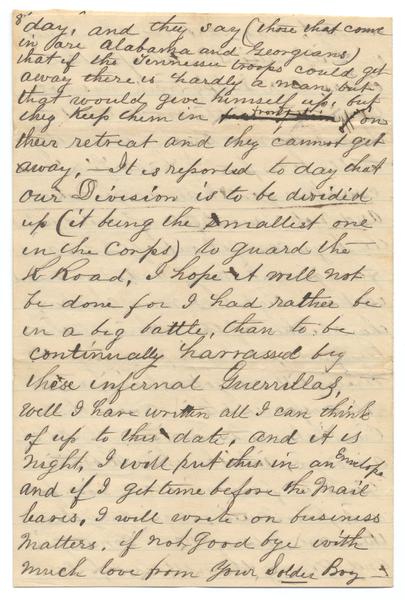 8
day, and they say (those that come
in are Alabama and Georgians)
that if the Tennessee troops could get
away there is hardly a man but
that would give himself up, but
they keep them in front on
their retreat and they cannot get
away,— It is reported to day that
our Division is to be divided
up (it being the smallest one
in the Corps) to guard the
R Road, I hope it will not
be done for I had rather be
in a big battle, than to be
continually harrassed by
these infernal Guerrillas,
Well I have written all I can think
of up to this date, and it is
night, I will put this in an Envelope
and if I get time before the Mail
leaves, I will write on business
Matters, if not Good bye with
much love from Your Solder Boy—